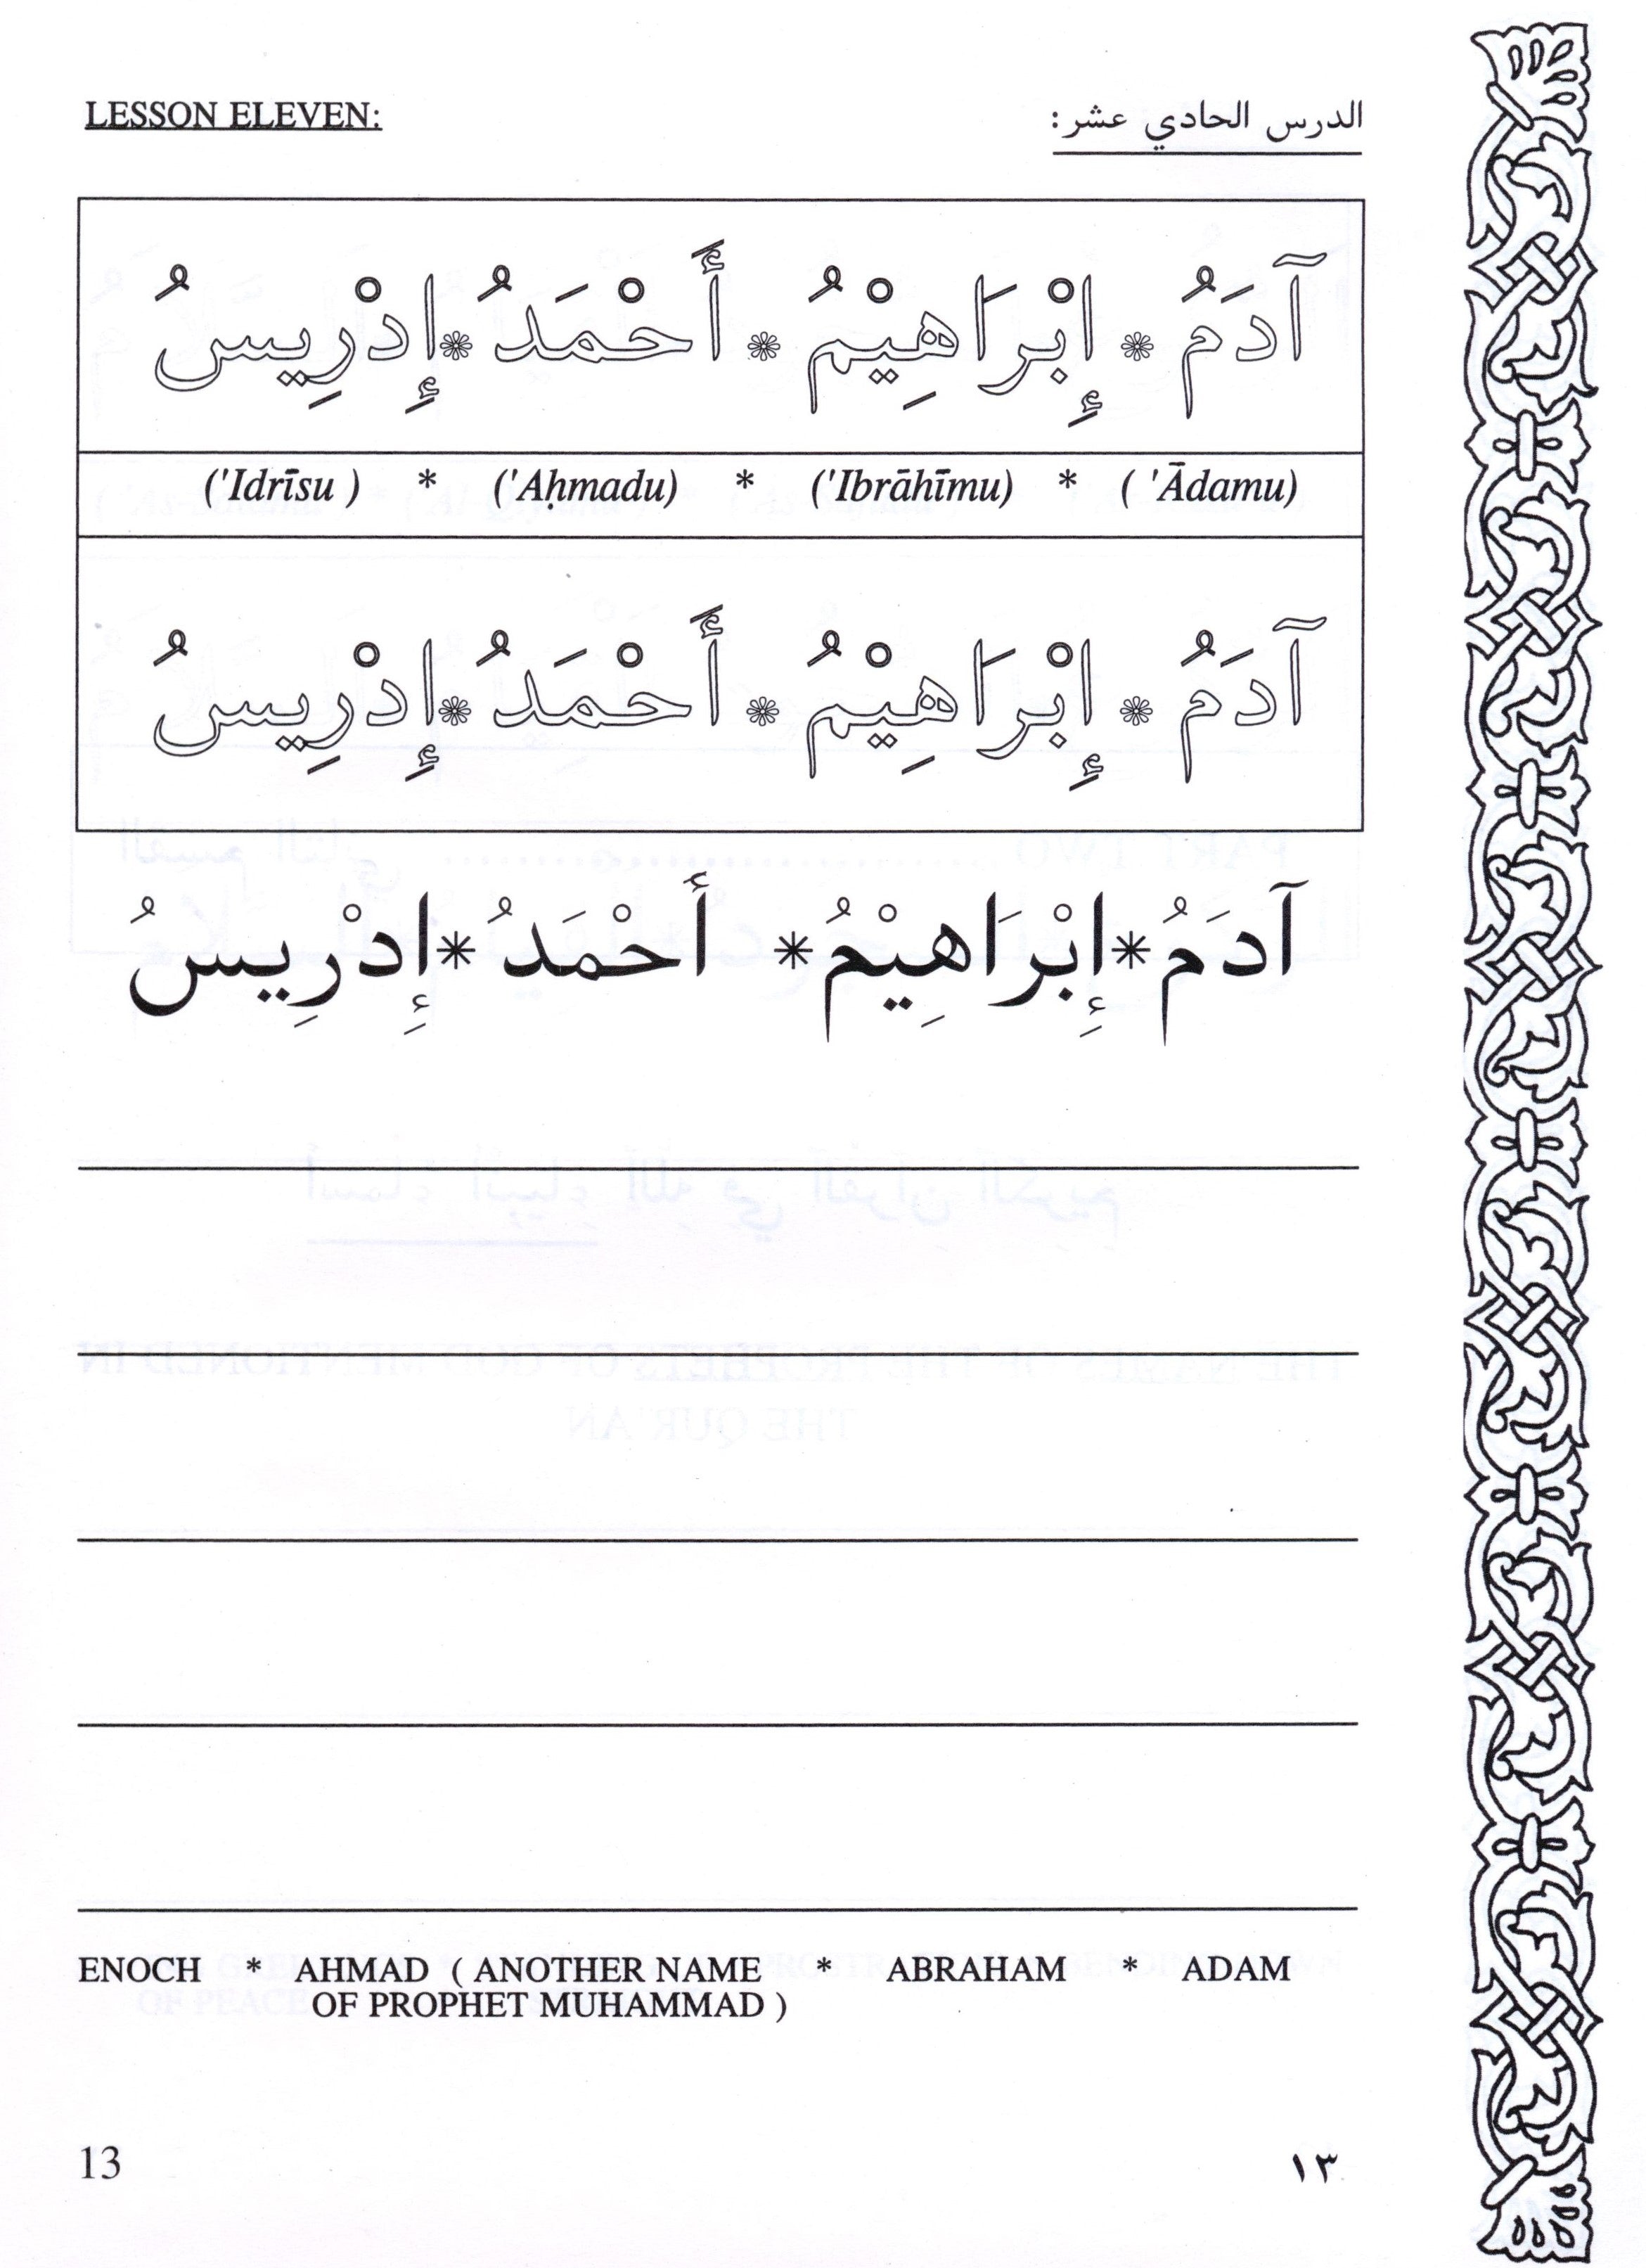 LESSON ELEVEN: الدرس الحادي عشر :
آدَمُ * إِبْرَاهِيْمُ * أَحْمَدُ * إِدْرِيسُ
('Idrīsu ) * ('Aḥmadu) * ('Ibrāhīmu) * ( 'Ādamu)
آدَمُ * إِبْرَاهِيْمُ * أَحْمَدُ * إِدْرِيسُ
آدَمُ * إِبْرَاهِيْمُ * أَحْمَدُ * إِدْرِيسُ
ENOCH * AHMAD ( ANOTHER NAME * ABRAHAM * ADAM
OF PROPHET MUHAMMAD )
13 ١٣